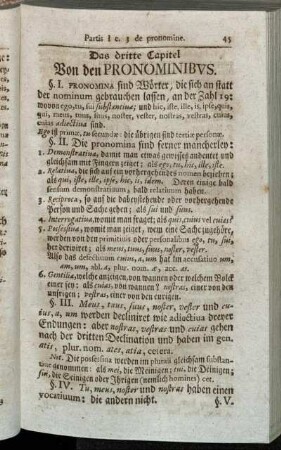 Partis I c. 3 de pronomine. 45
Das dritte Capitel
Von den PRONOMINIBVS.
§. I. PRONOMINA sind Wörter, die sich an statt
der nominum gebrauchen lassen, an der Zahl 19:
wovon ego, tu, sui substantiva; und hic, iste, ille, is, ipse, quis,
qui, meus, tuus, suus, noster, vester, nostras, vestras, cuius,
cuias adiectiva sind.
Ego ist primæ, tu secundæ: die übrigen sind tertiæ personæ.
§. II. Die pronomina sind ferner mancherley:
1. Demonstrativa, damit man etwas gewisses andeutet und
gleichsam mit Fingern zeiget: als ego, tu, hic, iste, ille.
2. Relativa, die sich auf ein vorhergehendes nomen beziehen:
als qui, iste, ille, ipse, hic, is, idem. Deren einige bald
sensum demonstrativum, bald relativum haben.
3. Reciproca, so auf die dabeystehende oder vorhergehende
Person und Sache gehen; als sui und suus.
4. Interrogativa, womit man fraget; als quis, cuius vel cuias?
5. Possessiva, womit man zeiget, wem eine Sache zugehöre,
werden von den primitivis oder personalibus ego, tu, sui,
her deriviret; als meus, tuus, suus, noster, vester.
Also des defectivum cuius, a, um hat im accusativo um,
am, um, abl. a, plur. nom. æ, acc. as.
6. Gentilia, welche anzeigen, von wannen oder welchem Volck
einer sey: als cuias, von wannen? nostras, einer von den
unsrigen; vestras, einer von den eurigen.
§. III. Meus, tuus, suus, noster, vester und cu-
ius, a, um werden declinirt wie adiectiva dreyer
Endungen: aber nostras, vestras und cuias gehen
nach der dritten Declination und haben im gen.
atis, plur. nom. ates, atia, cetera.
Not. Die possessiva werden im plurali gleichsam substan-
tive genommen: als mei, die Meinigen; tui, die Deinigen;
sui, die Seinigen oder Ihrigen (nemlich homines) cet.
§. IV. Tu, meus, noster und nostras haben einen
vocativum: die andern nicht. §. V.